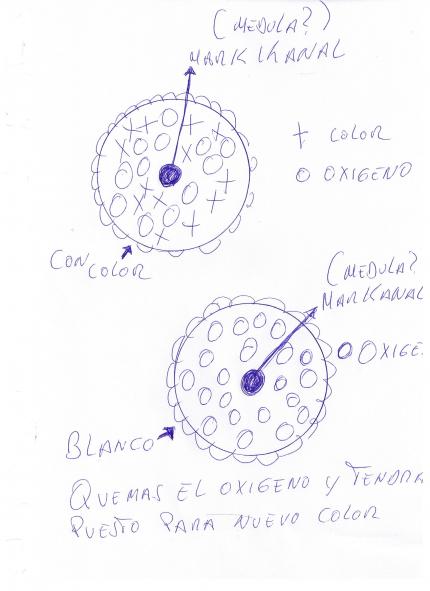 (MEDULA?)
MARKKANAL
+ COLOR
O OXIGENO
CON COLOR
(MEDULA?
MARKANAL
O OXIGE
BLANCO
QUEMAS EL OXIGENO Y TENDRA
PUESTO PARA NUEVO COLOR